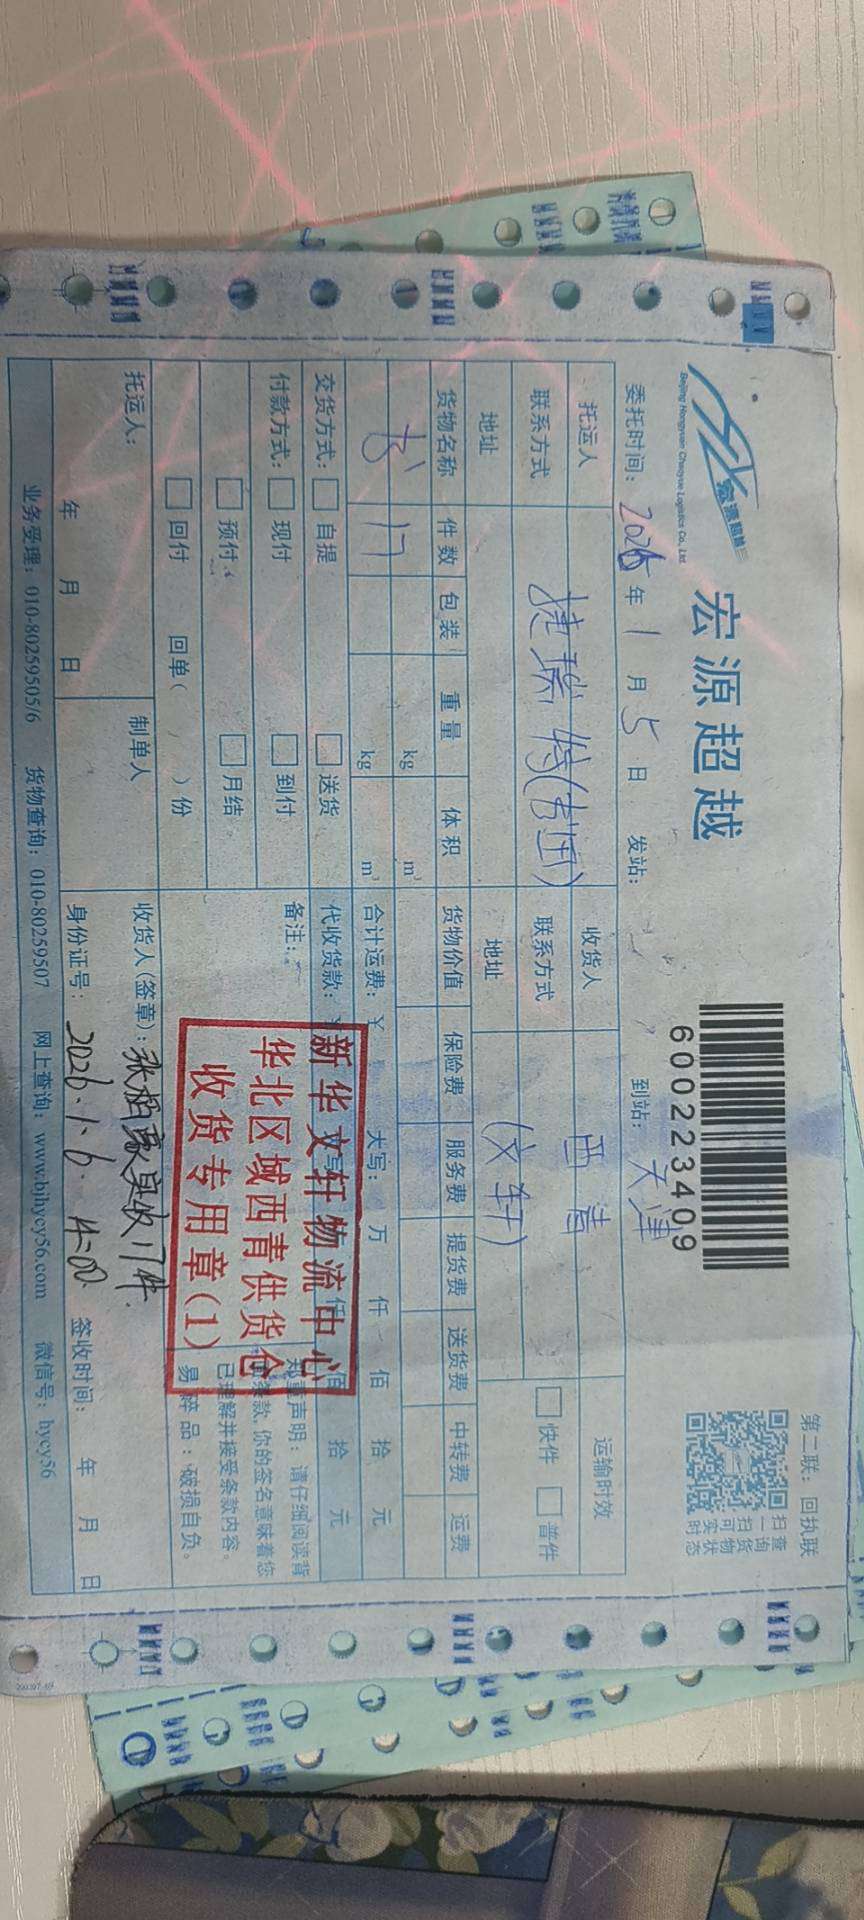 宏源超越
宏源超越
Beijing Hongyuan Chaoyue Logistics Co., Ltd.
600223409
第二联：回执联
扫一扫 查询货物实时状态
委托时间：2026年1月5日 发站： 到站：天津
托运人 捷瑞特(书国) 收货人 西青 运输时效
联系方式 联系方式 快件 普件
地址 地址 (文轩)
货物名称 件数 包装 重量 体积 货物价值 保险费 服务费 提货费 送货费 中转费 运费
书 17 kg m³
kg m³ 合计运费：¥ 大写： 万 仟 佰 拾 元
交货方式： 自提 送货 代收货款：¥ 仟 佰 拾 元
付款方式： 现付 到付 备注：
预付 月结
回付 回单( )份
郑重声明：请仔细阅读背
条款，你的签名意味着您
已理解并接受条款内容。
易碎品：破损自负。
新华文轩物流中心
华北区域西青供货仓
收货专用章(1)
托运人： 制单人 收货人(签章)： 实收17件
年 月 日 身份证号：2026.1.6. 4:00 签收时间： 年 月 日
业务受理：010-80259505/6 货物查询：010-80259507 网上查询：www.bjhycy56.com 微信号：hycy56